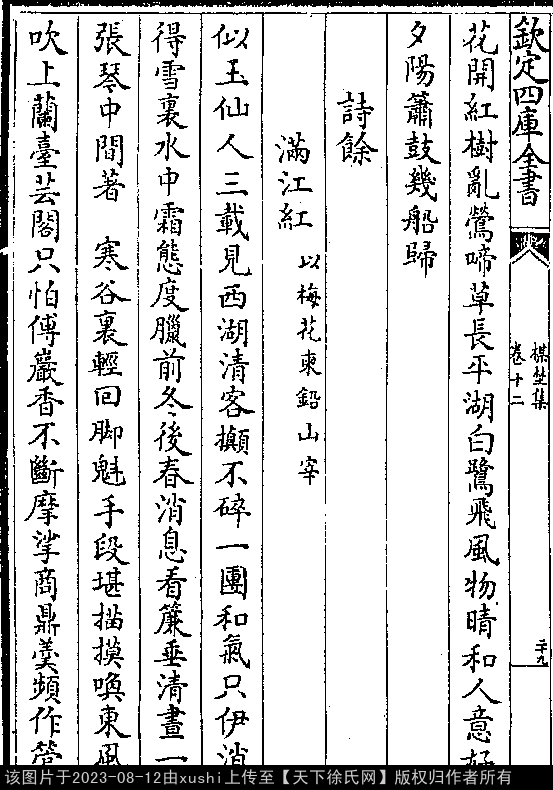 欽定四庫全書
楳埜集
卷十二
二十九
花開紅樹亂鶯啼草長平湖白鷺飛風物晴和人意好
夕陽簫鼓幾船歸
詩餘
滿江紅 以梅花柬鉛山宰
似玉仙人三載見西湖清客攧不碎一團和氣只伊消
得雪裏水中霜態度臘前冬後春消息看簾垂清晝一
張琴中間著 寒谷裏輕回脚魁手段堪描摸喚東風
吹上蘭臺芸閣只怕傅巖香不斷摩挲商鼎羮頻作管
该图片于2023-08-12由xushi上传至【天下徐氏网】版权归作者所有